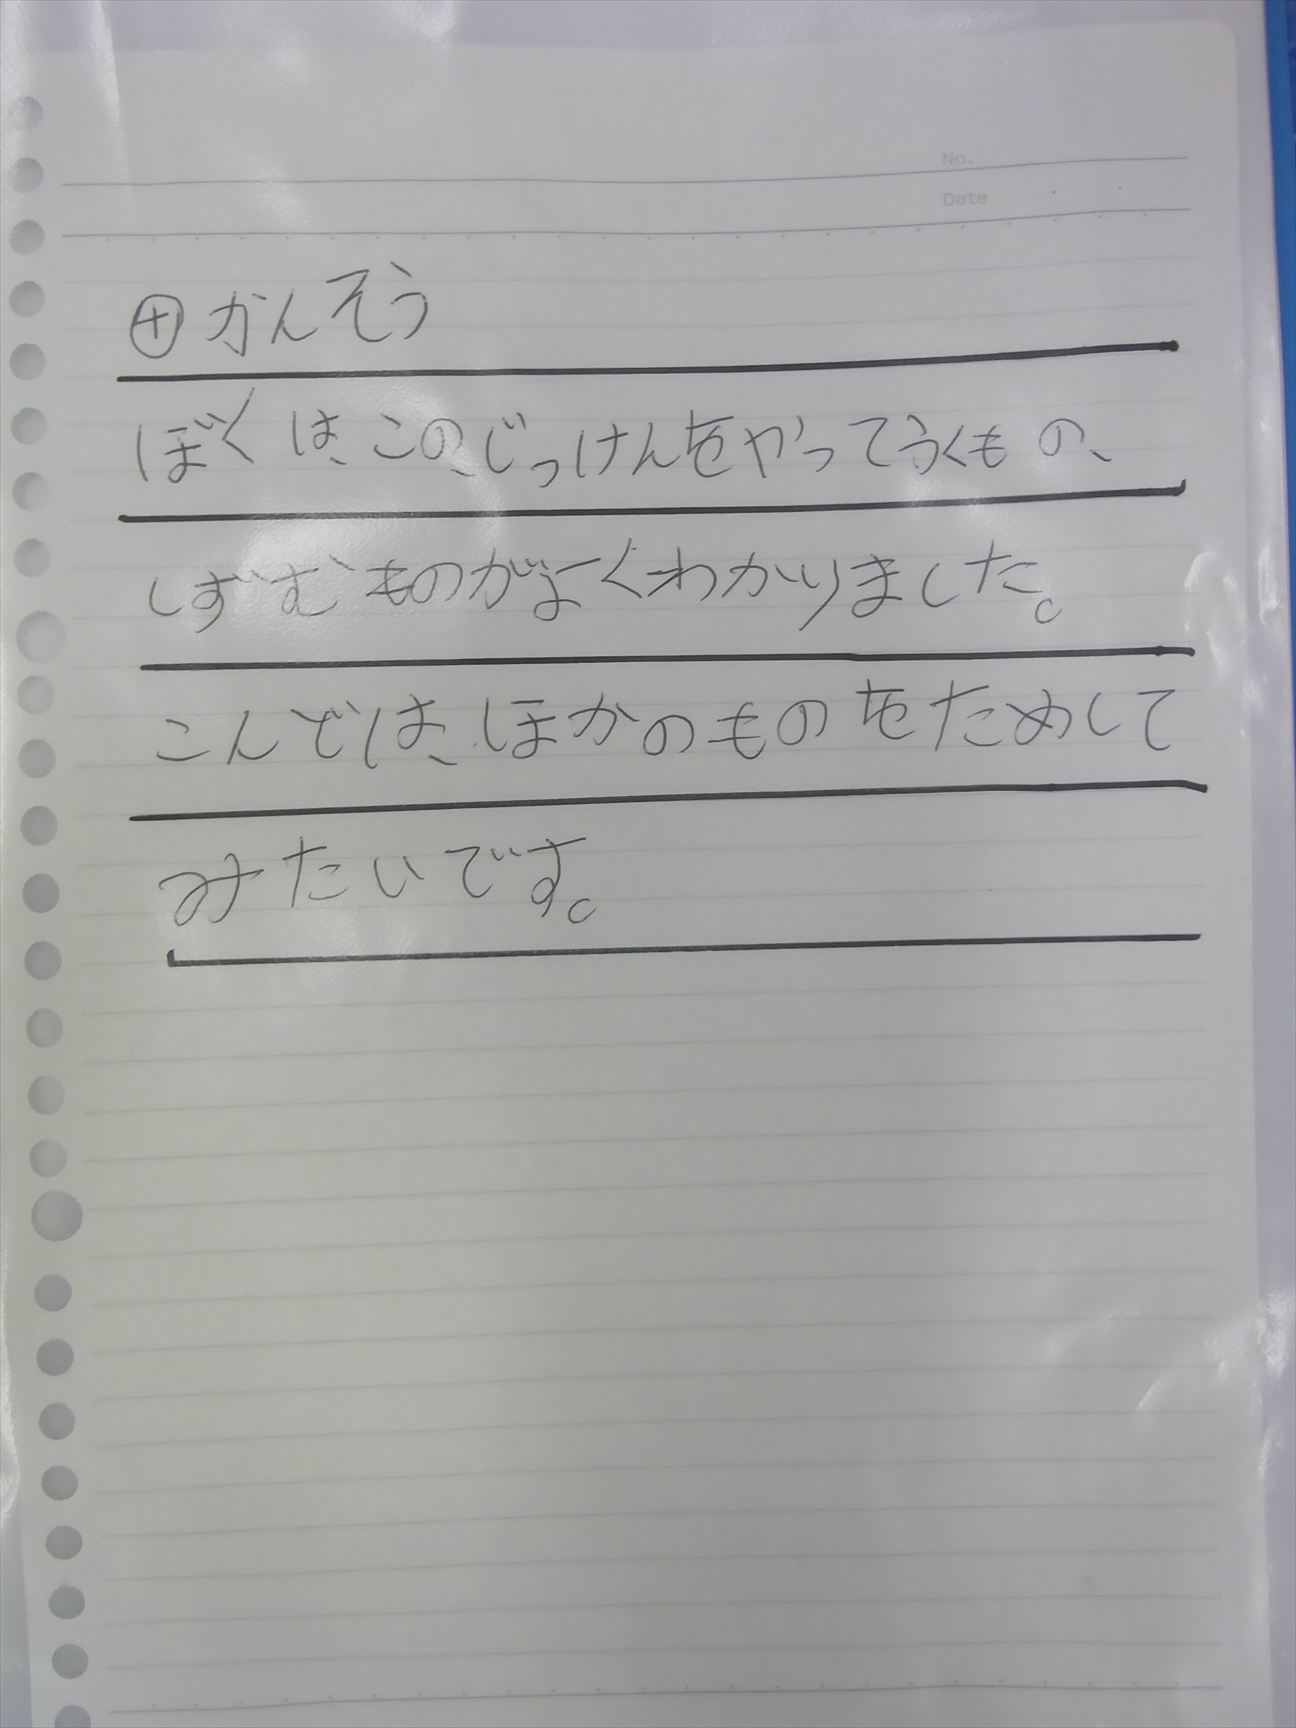 No.
Date
⊕かんそう
ぼくは、この、じっけんをやってうくもの、
しずむものがよくわかりました。
こんどは、ほかのものをためして
みたいです。